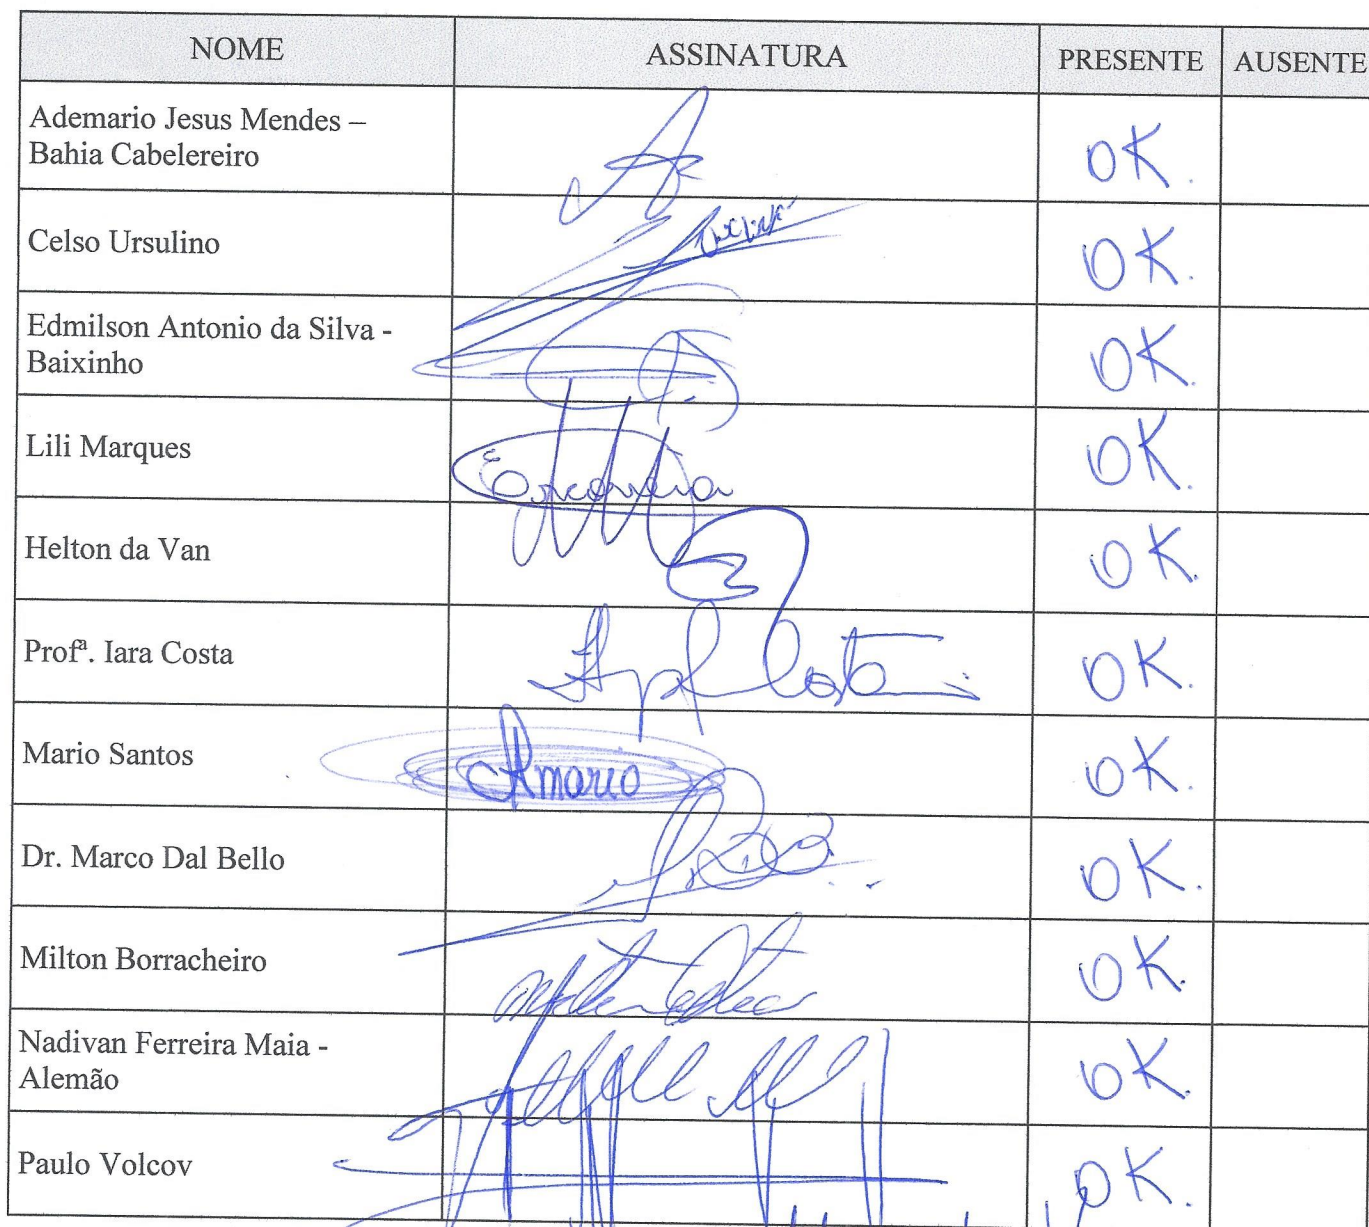 NOME ASSINATURA PRESENTE AUSENTE
Ademario Jesus Mendes –
Bahia Cabelereiro
OK.
Celso Ursulino
OK.
Edmilson Antonio da Silva -
Baixinho
OK.
Lili Marques
OK.
Helton da Van
OK.
Profª. Iara Costa Costa
OK.
Mario Santos
OK.
Dr. Marco Dal Bello
OK.
Milton Borracheiro
OK.
Nadivan Ferreira Maia -
Alemão
OK.
Paulo Volcov
OK.